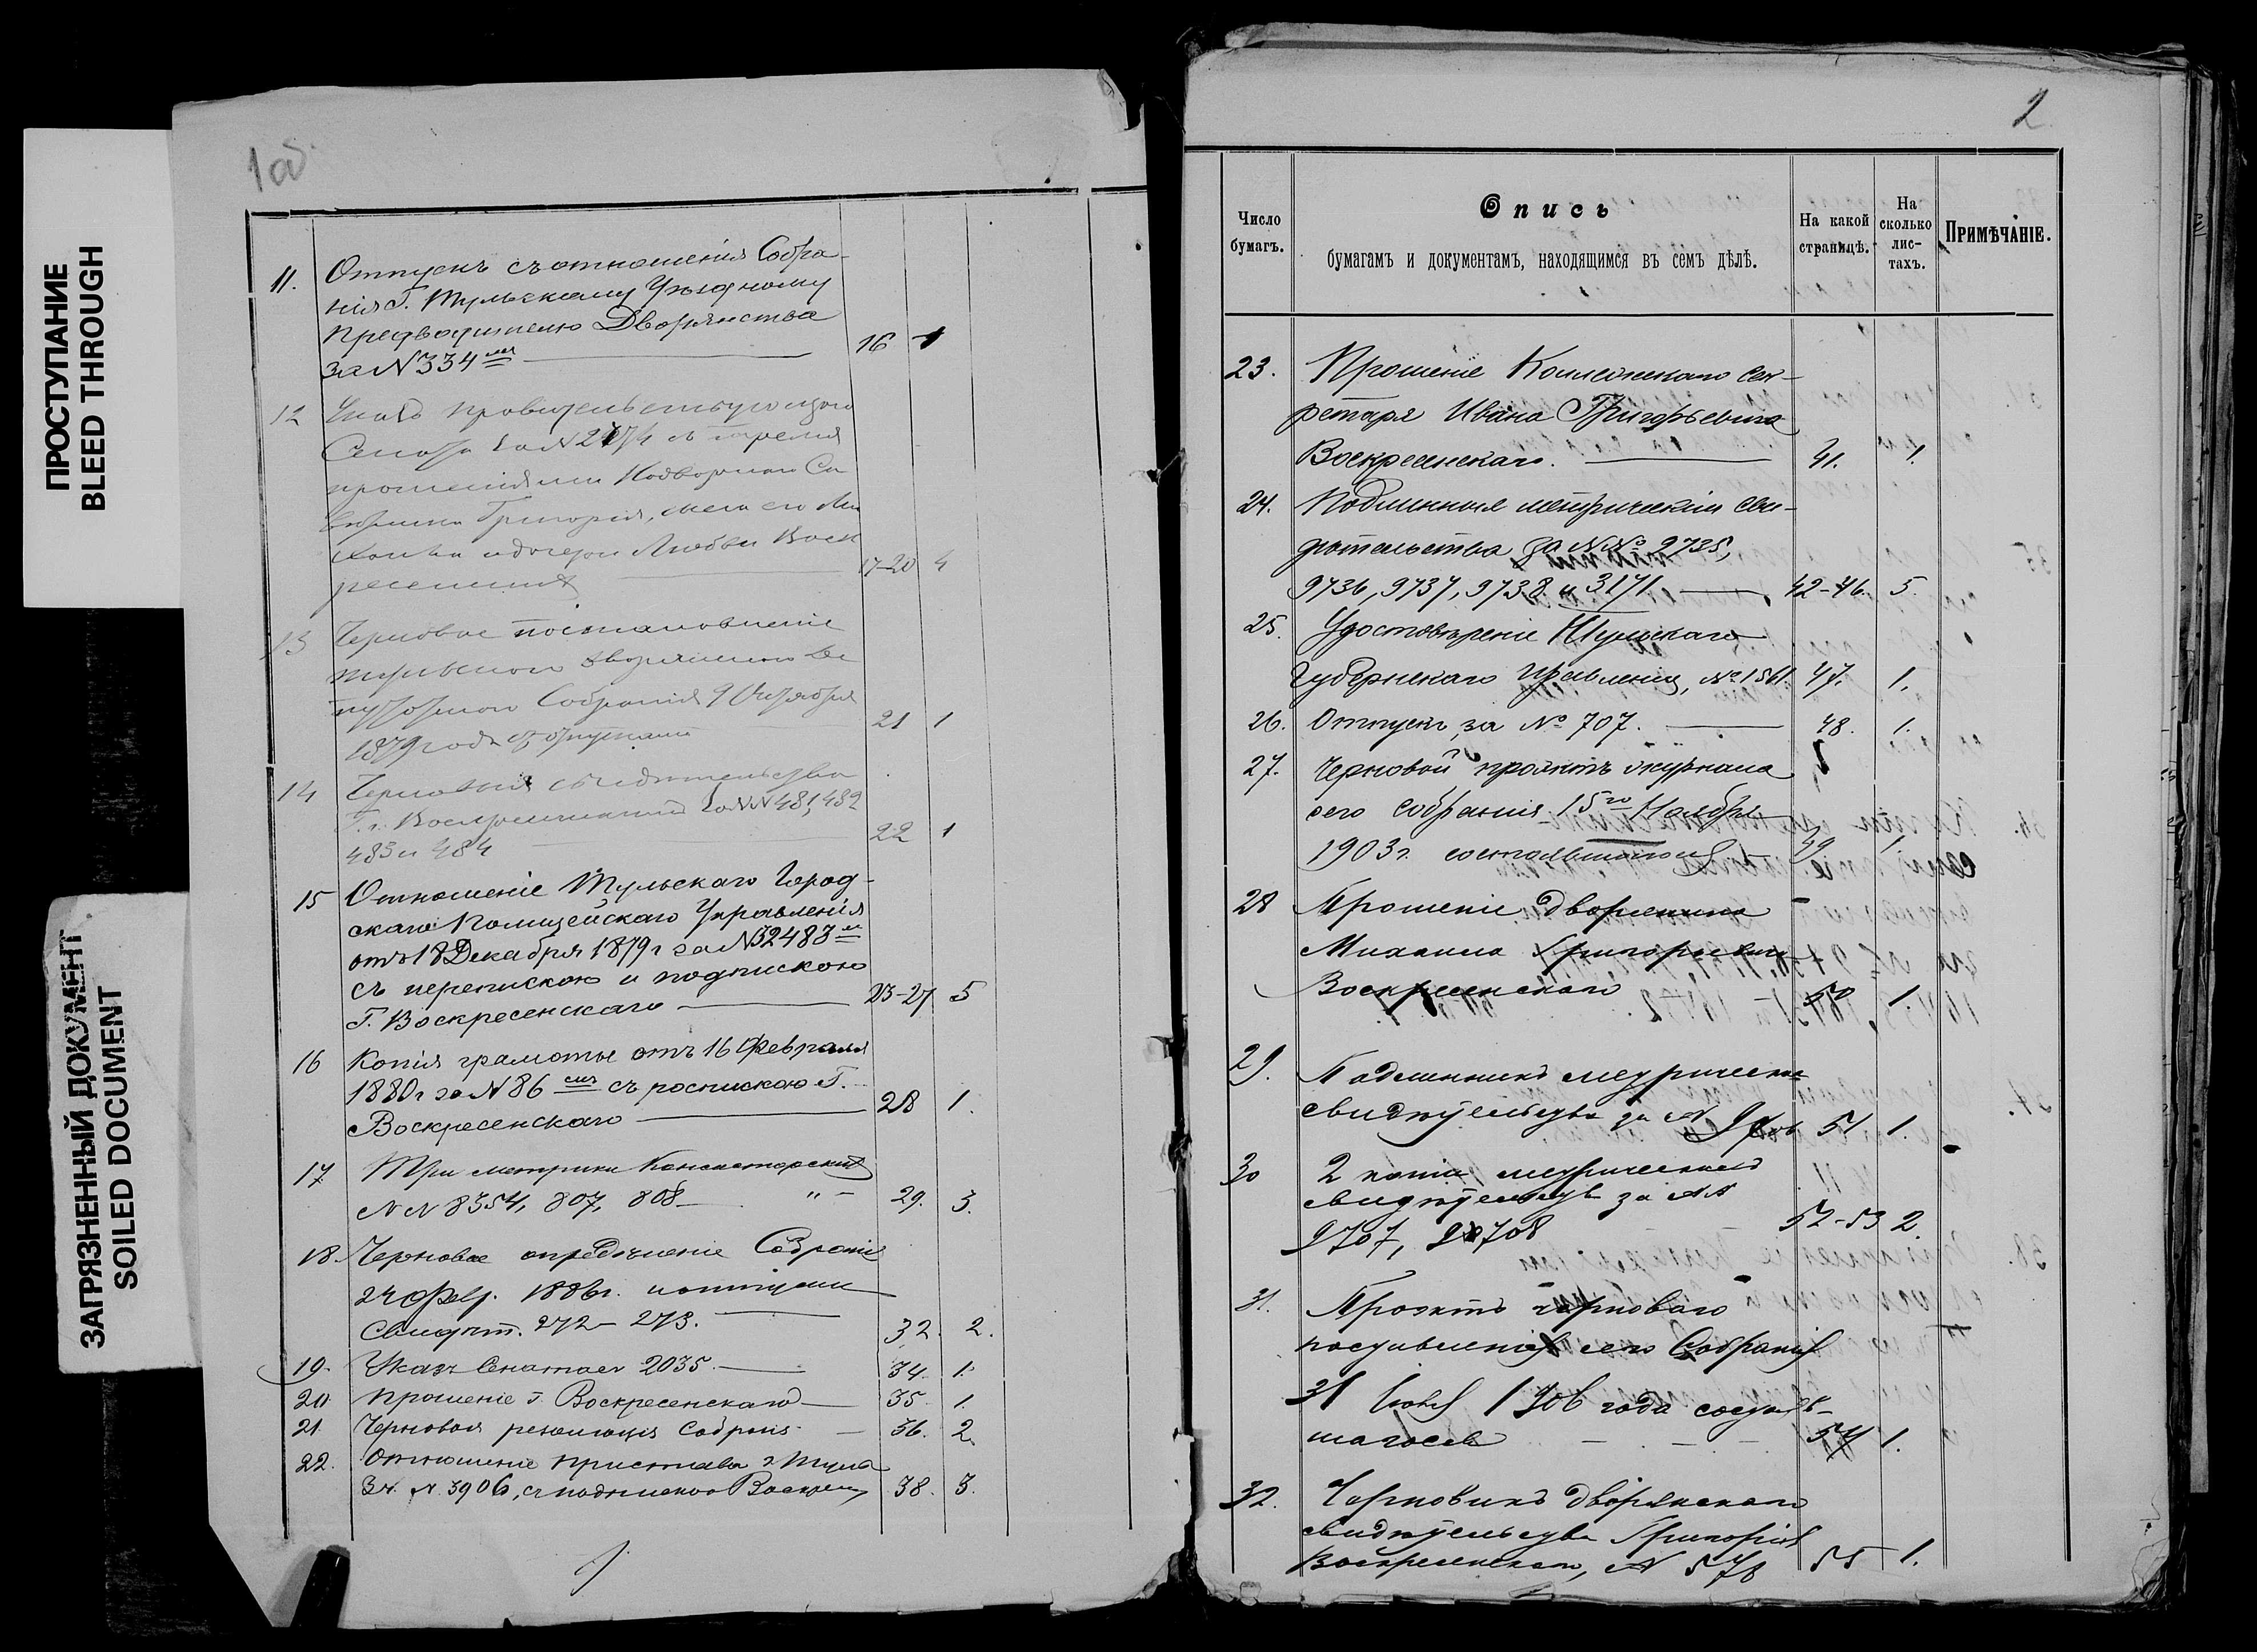 ПРОСТУПАНИЕ
BLEED THROUGH
ЗАГРЯЗНЕННЫЙ ДОКУМЕНТ
SOILED DOCUMENT
1об
11. Отпускъ съ отношенія Собра-
нія Г. Тульскому Уѣздному
Предводителю Дворянства
за N 334мъ 16 1
12 Указъ Правительствующаго
Сената за N 2474 съ тремя
прошеніями Надворнаго Со
вѣтника Григорія, сына его Ми
хаила и дочери Любви Воск
ресенскихъ 17-20 4
13 Черновое постановленіе
Тульскаго Дворянскаго Де
путатскаго Собранія 9 Октября
1879 года съ отпусками 21 1
14 Черновыя свидѣтельства
Г.г. Воскресенскимъ за NN 481, 482
483 и 484 22 1
15 Отношеніе Тульскаго Город-
скаго Полицейскаго Управленія
отъ 18 Декабря 1879 г за N 32483м
съ перепискою и подпискою
Г. Воскресенскаго 23-27 5
16 Копія грамоты отъ 16 Февраля
1880 г за N 86 съ роспискою Г.
Воскресенскаго 28 1.
17 Три метрики Консисторскихъ
NN 8354, 807, 808 " 29. 3.
18. Черновое опредѣленіе Собранія
24 Февр. 1886 г. и отпуски
Свидѣт. 272-273. 32. 2.
19. Указъ Сената 2035. 34. 1.
20. Прошеніе г. Воскресенскаго 35. 1.
21. Черновая резолюція Собранія 36. 2.
22. Отношеніе Пристава г. Тулы
За N. 3906, съ подпискою Воскресен 38. 3.
2
Число
бумагъ.
Опись
бумагамъ и документамъ, находящимся въ семъ дѣлѣ.
На какой
страницѣ.
На
сколько
лис-
тахъ.
Примѣчаніе.
23. Прошеніе Коллежскаго Сек-
ретаря Ивана Григорьевича
Воскресенскаго. 41. 1.
24. Подлинныя метрическія сви-
дѣтельства за NNо 9735,
9736, 9737, 9738 и 3171 42-46. 5.
25. Удостовѣреніе Тульскаго
Губернскаго Правленія, № 1561. 47. 1.
26. Отпускъ за № 707. 48. 1.
27. Черновой проэктъ журнала
сего собранія 15го Ноября
1903 г. состоявшагося 49 1
28 Прошеніе дворянина
Михаила Григорьевича
Воскресенскаго 50 1.
29. Подлинникъ метрическаго
свидѣтельства за N 51 1.
30 2 копіи метрическихъ
свидѣтельствъ за NN
9707, 9708 52-53 2.
31. Проэктъ чернового
постановленія сего Собранія
31 1906 года состояв-
шагося 54 1.
32. Черновикъ дворянскаго
свидѣтельства Григорія
Воскресенскаго, N 576 55 1.